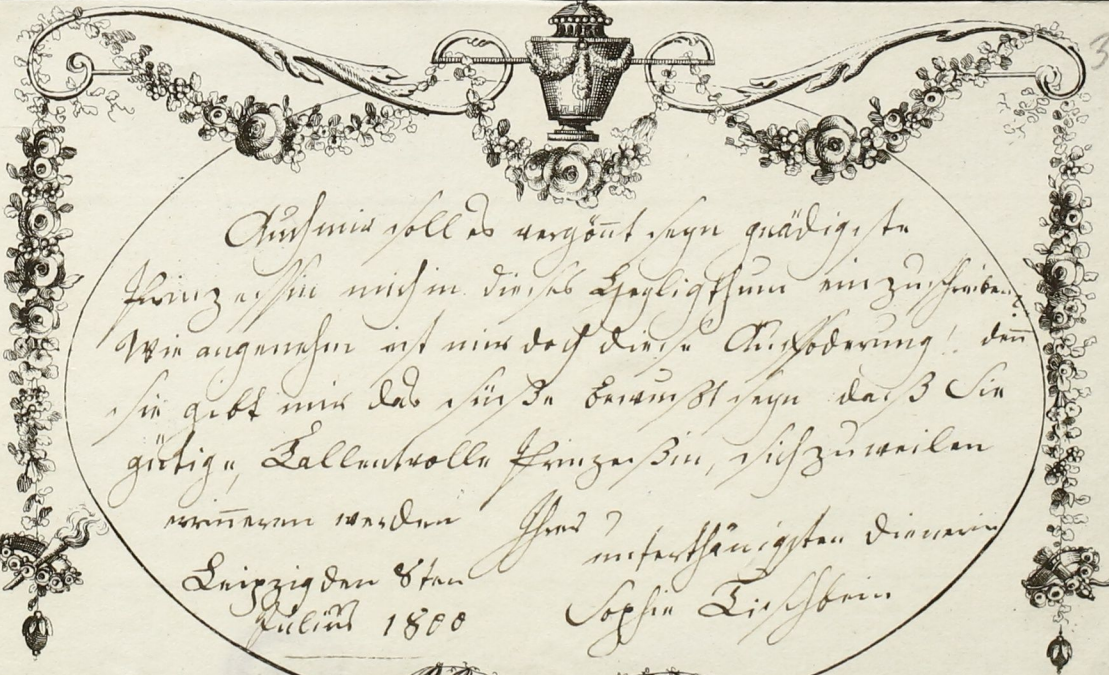 Auch mir soll es vergönt seyn gnädigste
Prinzessin mich in dieses Heyligthum einzuschreiben.
Wie angenehm ist mir doch diese Aufoderung! den̅
sie gibt mir das süße bewußt seyn daß Sie
gütige, Tallentvolle Prinzeßin, sich zuweilen
erin̅eren werden Ihrer
unterthänigsten Dienerin
Leipzig den 8ten
Julius 1800
Sophie Tischbein